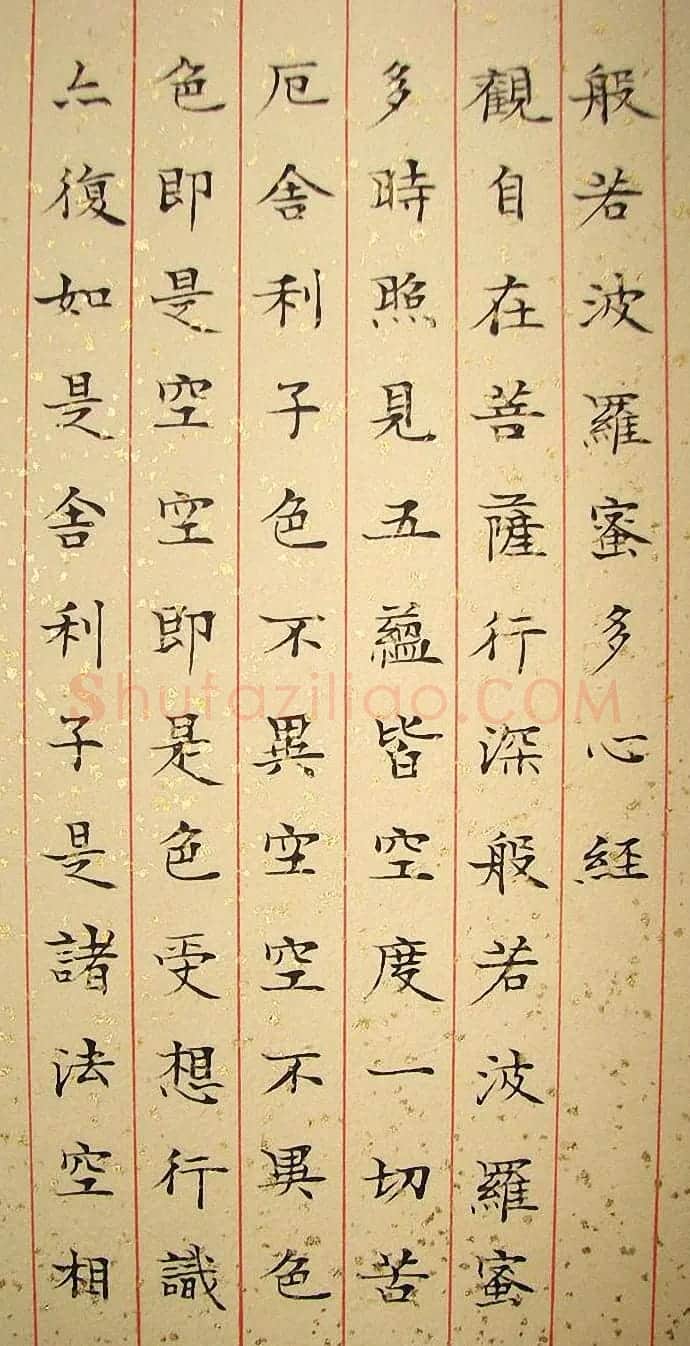 般若波羅蜜多心経
觀自在菩薩行深般若波羅蜜
多時照見五蘊皆空度一切苦
厄舎利子色不異空空不異色
色即是空空即是色受想行識
亦復如是舎利子是諸法空相
Shufaziliao.COM